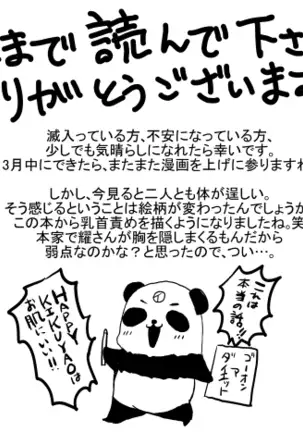 まで読んで下さ
りがとうございます
滅入っている方、不安になっている方、
少しでも気晴らしになれたら幸いです。
3月中にできたら、またまた漫画を上げに参りますね
しかし、今見ると二人とも体が逞しい。
そう感じるということは絵柄が変わったんでしょうか
この本から乳首責めを描くようになりましたね。笑
本家で耀さんが胸を隠しまくるもんだから
弱点なのかな?と思ったので、つい…。
これは
本当の話。
HAPPY
KIKUYAOは
お肌にいい!!
ゴーオン
ア
ダイエット